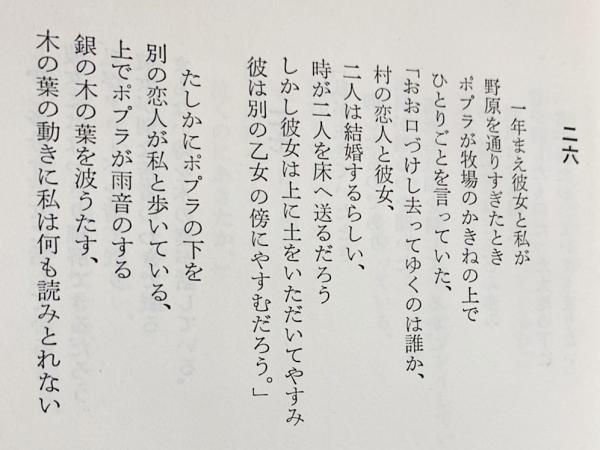 二六
一年まえ彼女と私が
野原を通りすぎたとき
ポプラが牧場のかきねの上で
ひとりごとを言っていた、
「おお口づけし去ってゆくのは誰か、
村の恋人と彼女、
二人は結婚するらしい、
時が二人を床へ送るだろう
しかし彼女は上に土をいただいてやすみ
彼は別の乙女の傍にやすむだろう。」
たしかにポプラの下を
別の恋人が私と歩いている、
上でポプラが雨音のする
銀の木の葉を波うたす、
木の葉の動きに私は何も読みとれない